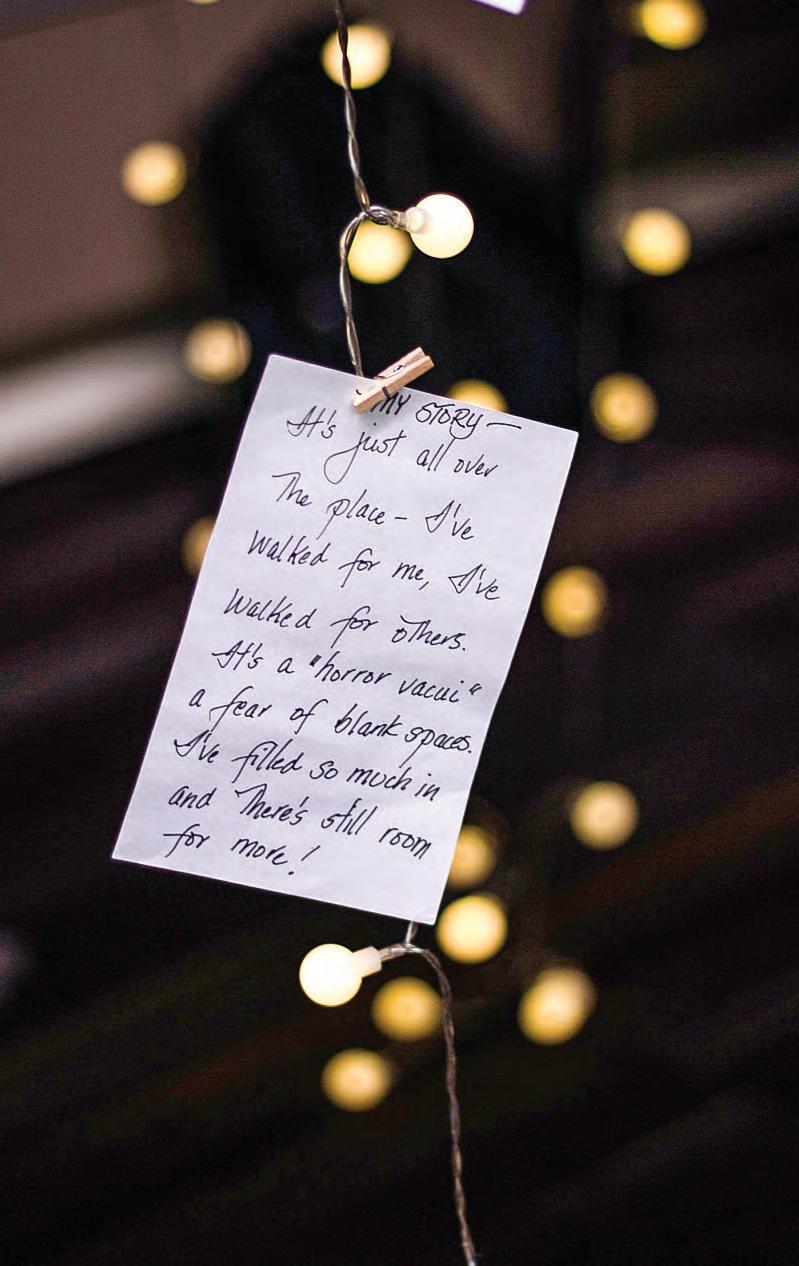 MY STORY—
It's just all over
The place - I've
walked for me, I've
walked for others.
It's a "horror vacui"
a fear of blank spaces.
I've filled so much in
and There's still room
for more!